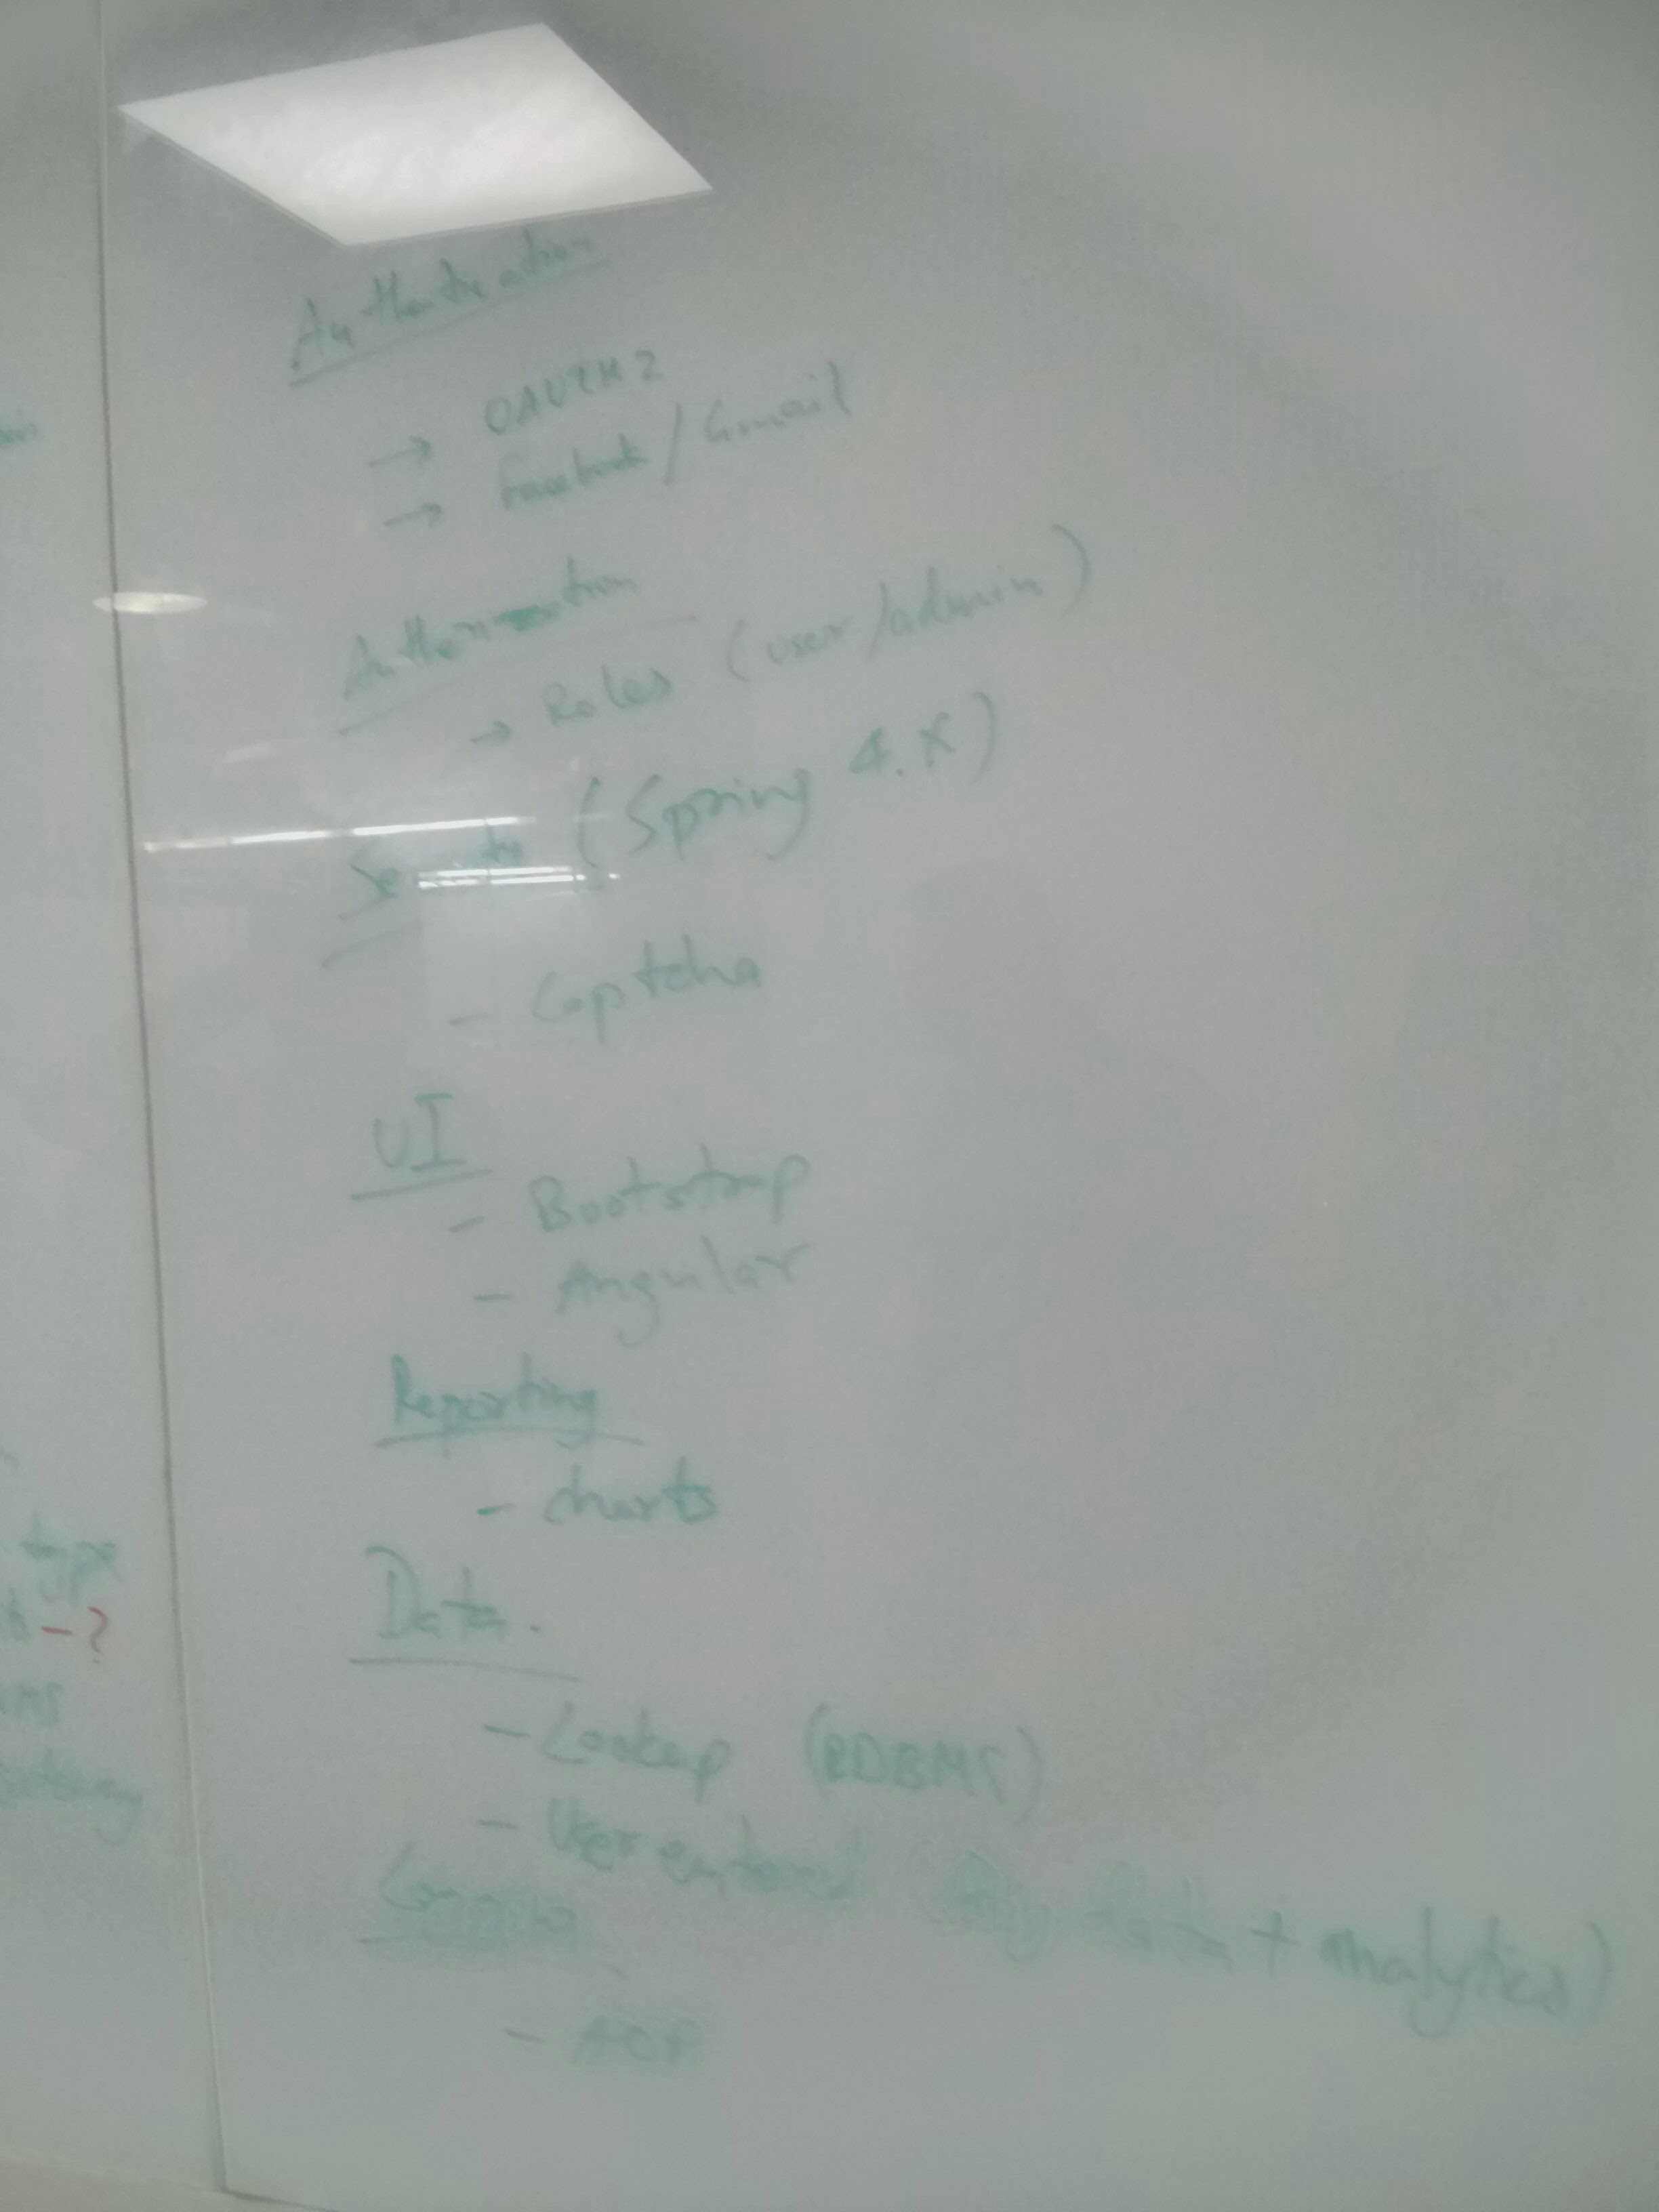 Authentication
→ OAUTH2
→ Facebook / Gmail
Authorization
→ Roles (user/admin)
(Spring 4.X)
- Captcha
UI
- Bootstrap
- Angular
Reporting
- charts
Data.
- Lookup (RDBMS)
- User entered (Big data + analytics)
Logging
- AOP
type
- ?